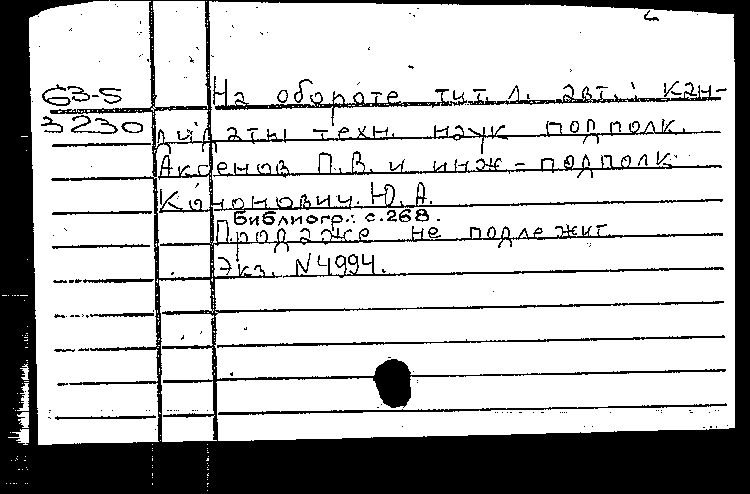 63-5 На обороте тит. л. авт.: Кан-
3230 дидаты техн. наук подполк.
Аксенов П.В. и инж-подполк
Кононович. Ю.А.
Библиогр.: с.268.
Продаже не подлежит
Экз. N4994.